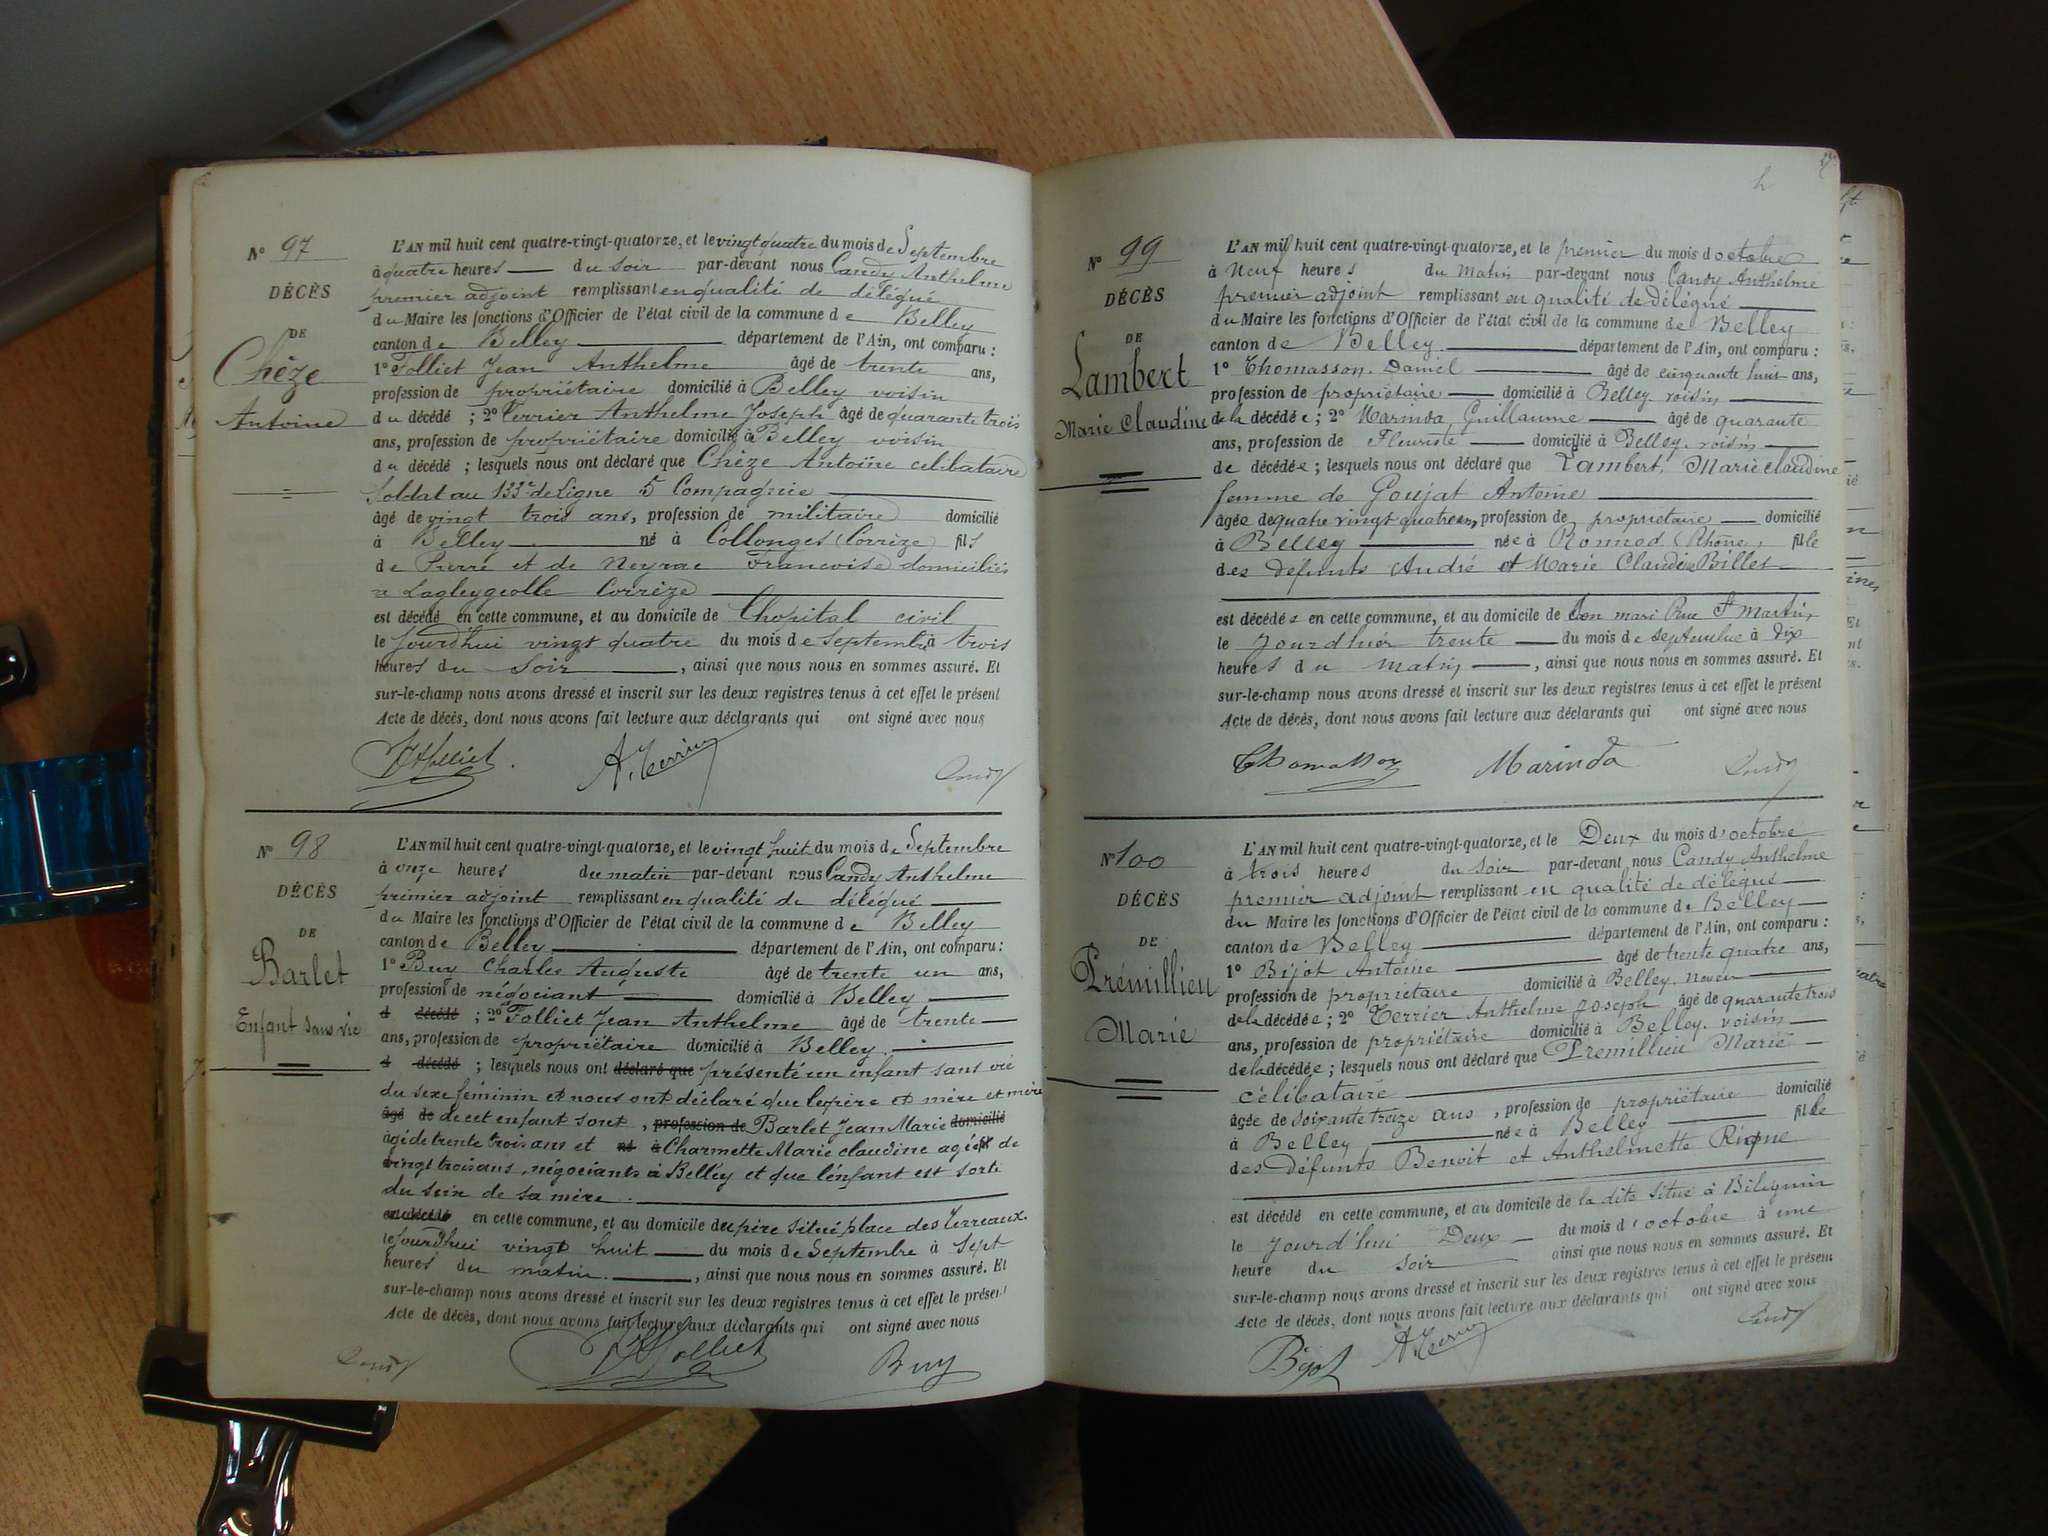 N° 97
DÉCÈS
DE
Chèze
Antoine
L'AN mil huit cent quatre-vingt-quatorze, et le vingt quatre du mois de Septembre
à quatre heures du soir par-devant nous Candy Anthelme
premier adjoint remplissant en qualité de délégué
du Maire les fonctions d'Officier de l'état civil de la commune de Belley
canton de Belley département de l'Ain, ont comparu :
1° Folliet Jean Anthelme âgé de trente ans,
profession de propriétaire domicilié à Belley voisin
du décédé ; 2° Terrier Anthelme Joseph âgé de quarante trois
ans, profession de propriétaire domicilié à Belley voisin
du décédé ; lesquels nous ont déclaré que Chèze Antoine celibataire
Soldat au 133e de Ligne 5 Compagnie
âgé de vingt trois ans, profession de militaire domicilié
à Belley né à Collonges (Corrèze) fils
de Pierre et de Neyrac Francoise domiciliés
a Lagleygeolle Corrèze
est décédé en cette commune, et au domicile de l'hopital civil
le jourd'hui vingt quatre du mois de septembre à trois
heures du soir, ainsi que nous nous en sommes assuré. Et
sur-le-champ nous avons dressé et inscrit sur les deux registres tenus à cet effet le présent
Acte de décès, dont nous avons fait lecture aux déclarants qui ont signé avec nous
Folliet A. Terrier Candy
N° 98
DÉCÈS
DE
Barlet
Enfant sans vie
L'AN mil huit cent quatre-vingt-quatorze, et le vingt huit du mois de Septembre
à onze heures du matin par-devant nous Candy Anthelme
premier adjoint remplissant en qualité de délégué
du Maire les fonctions d'Officier de l'état civil de la commune de Belley
canton de Belley département de l'Ain, ont comparu :
1° Buy Charles Auguste âgé de trente un ans,
profession de négociant domicilié à Belley
d décédé ; 2° Folliet Jean Anthelme âgé de trente
ans, profession de propriétaire domicilié à Belley.
d décédé ; lesquels nous ont déclaré que présenté un enfant sans vie
du sexe féminin et nous ont déclaré que le père et mère et mère
âgé de de cet enfant sont, profession de Barlet Jean Marie domicilié
âgé de trente trois ans et né à Charmette Marie claudine agée de
vingt trois ans, négociants à Belley et que l'enfant est sorti
du sein de sa mère.
est décédé en cette commune, et au domicile du père situé place des Terreaux.
le jourd'hui vingt huit du mois de Septembre à Sept
heures du matin., ainsi que nous nous en sommes assuré. Et
sur-le-champ nous avons dressé et inscrit sur les deux registres tenus à cet effet le présent
Acte de décès, dont nous avons fait lecture aux déclarants qui ont signé avec nous
Candy Folliet Buy
N° 99
DÉCÈS
DE
Lambert
Marie Claudine
L'AN mil huit cent quatre-vingt-quatorze, et le premier du mois d octobre
à Neuf heures du matin par-devant nous Candy Anthelme
premier adjoint remplissant en qualité de délégué
du Maire les fonctions d'Officier de l'état civil de la commune de Belley
canton de Belley département de l'Ain, ont comparu :
1° Thomasson Daniel âgé de cinquante huit ans,
profession de propriétaire domicilié à Belley voisin
de la décédée ; 2° Marinda Guillaume âgé de quarante
ans, profession de Fleuriste domicilié à Belley. voisin
de décédée ; lesquels nous ont déclaré que Lambert, Marie claudine
femme de Goujat Antoine
âgée de quatre vingt quatre ans, profession de propriétaire domicilié
à Belley née à Ronnod (Rhône) fille
des défunts André et Marie Claudine Billet
est décédée en cette commune, et au domicile de son mari Rue St Martin,
le jourd'hier trente du mois de septembre à dix
heures du matin, ainsi que nous nous en sommes assuré. Et
sur-le-champ nous avons dressé et inscrit sur les deux registres tenus à cet effet le présent
Acte de décès, dont nous avons fait lecture aux déclarants qui ont signé avec nous
Thomasson Marinda Candy
N° 100
DÉCÈS
DE
Prémillieu
Marie
L'AN mil huit cent quatre-vingt-quatorze, et le Deux du mois d'octobre
à trois heures du soir par-devant nous Candy Anthelme
premier adjoint remplissant en qualité de délégué
du Maire les fonctions d'Officier de l'état civil de la commune de Belley
canton de Belley département de l'Ain, ont comparu :
1° Bijot Antoine âgé de trente quatre ans,
profession de propriétaire domicilié à Belley. neveu
de la décédée ; 2° Terrier Anthelme Joseph âgé de quarante trois
ans, profession de propriétaire domicilié à Belley. voisin
de la décédée ; lesquels nous ont déclaré que Prémillieu Marie
célibataire
âgée de soixante treize ans, profession de propriétaire domicilié
à Belley née à Belley fille
des défunts Benoit et Anthelmette Rique
est décédé en cette commune, et au domicile de la dite situé à Bilignin
le jourd'hui Deux du mois d'octobre à une
heure du soir ainsi que nous nous en sommes assuré. Et
sur-le-champ nous avons dressé et inscrit sur les deux registres tenus à cet effet le présent
Acte de décès, dont nous avons fait lecture aux déclarants qui ont signé avec nous
Bijot A. Terrier Candy